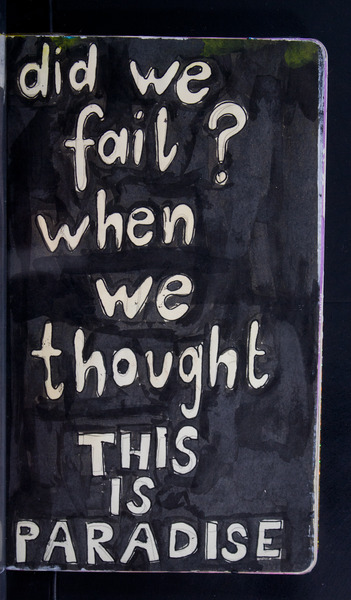 did we
fail?
when
we
thought
THIS
IS
PARADISE